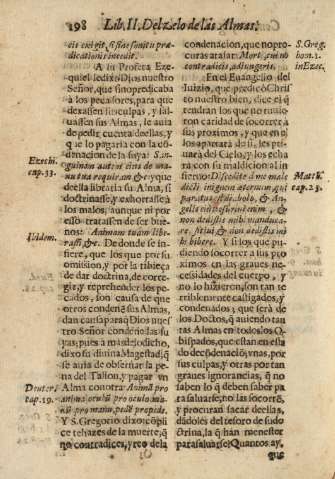 198 Lib. II. Del zelo de las Almas.
cis exigit, si sine sonitu præ-
dicationis incedit.
A la Profeta Eze-
quiel le dixo Dios nuestro
Señor, que sino predicaba
à los pecadores, para que
dexassen sus culpas, y sal-
vassen sus Almas, le avia
de pedir cuenta de ellas, y
que lo pagaria con la cõ-
denacion de la suya: San-
guinem autem eius de ma-
nu tua requiram &c. y que
Ezechi.
cap. 33.
de ella libraria su Alma, si
doctrinasse, y exhortasse à
los malos, aunque ni por
esso tratassen de ser bue-
nos: Animam tuam libe-
rasti &c. De donde se in-
Idem.
fiere, que los que por su
omission, y por la tibieça
de dar doctrina, de corre-
gir, y reprehender los pe-
cados, son causa de que
otros condenē sus Almas,
dan causa para q̃ Dios nues-
tro Señor condene las su-
yas; pues à mas de lo dicho,
dixo su divina Magestad, q̃
se avia de observar la pe-
na del Talion, y pagar un
Alma con otra: Animã pro
Deuter.
cap. 19.
anima, oculũ pro oculo, ma-
nũ pro manu, pedẽ pro pede.
Y S. Gregorio dixo, cõpli-
ce te hazes de la muerte, q̃
no contradices, y reo de la
condenacion, que no pro-
curas atajar. Morti, cui nõ
contradicis, adiungeris.
S. Greg.
hom. 1.
in Ezec.
En el Evangelio del
Juizio, que predicò Chris-
to nuestro bien, dice el q̃
tendran los que no tuvie-
ron caridad de socorrer à
sus proximos, y que en lo
aparará de si, les pri-
vará del Cielo, y los echa-
rá con su maldicion al in-
fierno: Discedite à me male-
dicti in ignem æternum, qui
Matth.
cap. 25.
paratus est diabolo, & An-
gelis eius: esurivi enim, &
non dedistis mihi manduca-
re, sitivi & non dedistis mi-
hi bibere. Y si los que pu-
diendo socorrer à sus pro-
ximos en las graves ne-
cesidades del cuerpo, y
no lo hizieron, son tan te-
rriblemente castigados, y
condenados; que será de
los Doctos, q̃ aviendo tan-
tas Almas en todos los Q-
bispados, que estan en esta-
do de cõdenaciõ; unas, por
sus culpas, y otras por tan
granes ignorancias, q̃ no
saben lo q̃ deben saber pa-
ra salvarse, no las socorrẽ,
y procuran sacar de ellas,
dadoles del tesoro de su do-
ctrina, la q̃ han menester
para salvarse; Quantos ay,
que